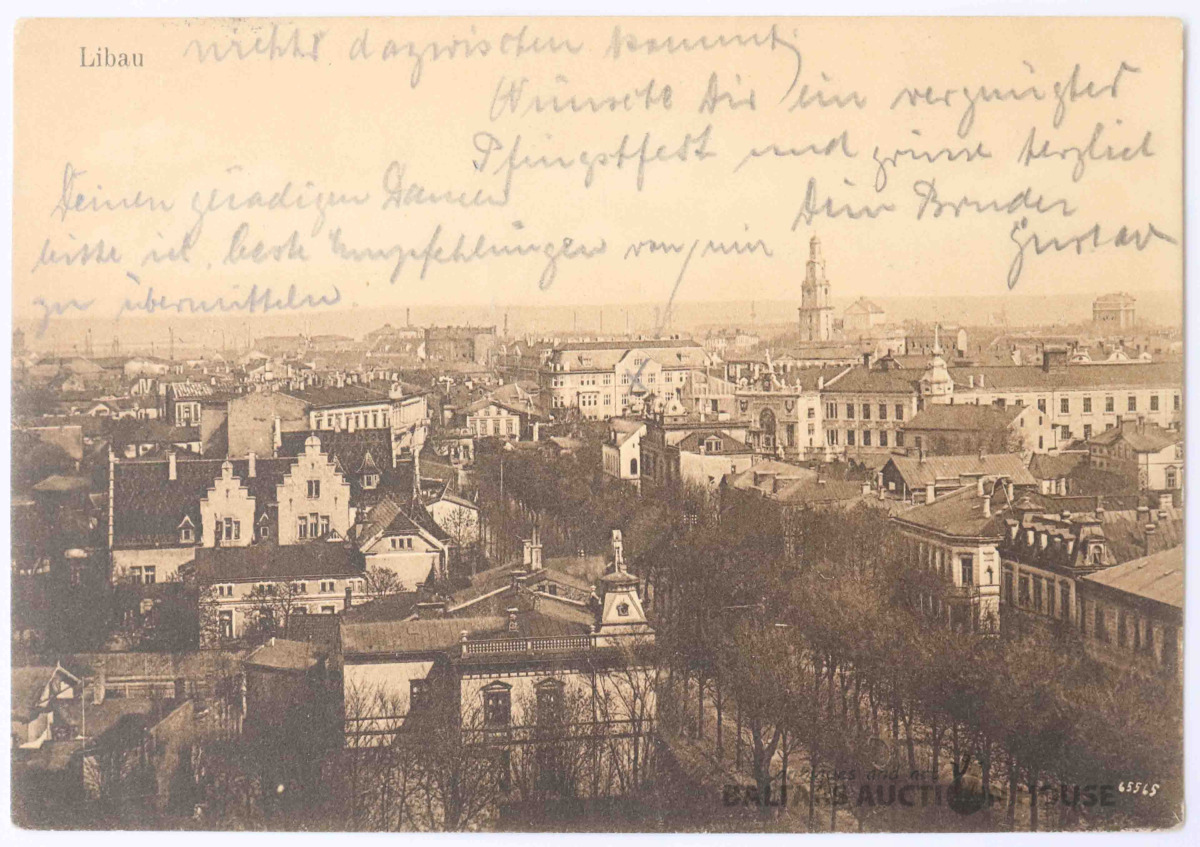 Libau
nichts dazwischen kommt,
Wünsche Dir ein vergnügtes
Pfingstfest und grüsse herzlich
Dein Bruder
Gustav
Deinen gnädigen Damen
bitte ich, beste Empfehlungen von mir
zu übermitteln
antiques and art
BALTARS AUCTION HOUSE
65565